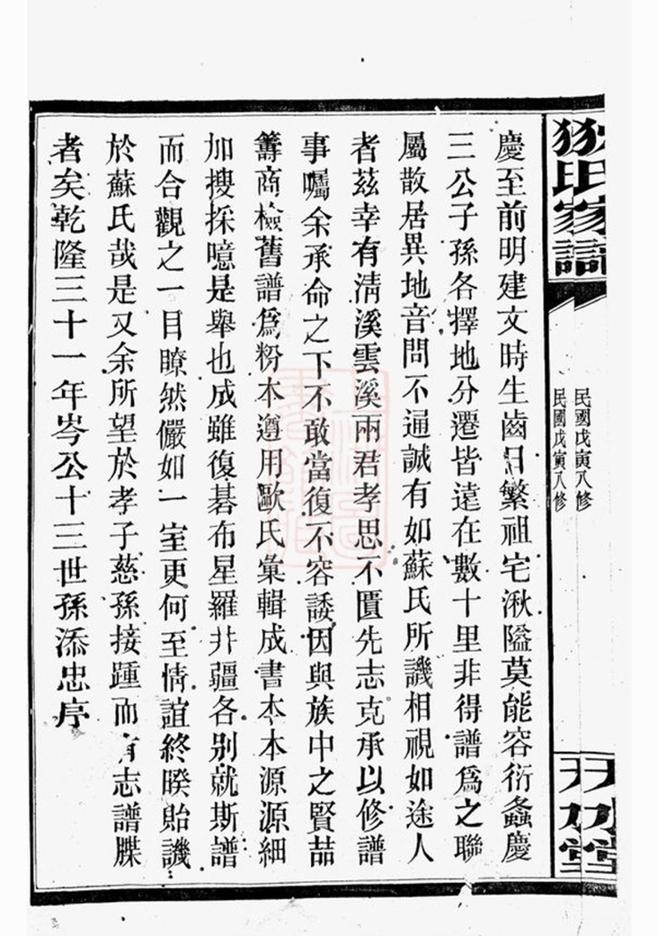 狄氏家譜
民國戊寅八修
民國戊寅八修
天水堂
慶至前明建文時生齒日繁祖宅湫隘莫能容衍螽慶
三公子孫各擇地分遷皆遠在數十里非得譜爲之聯
屬散居異地音問不通誠有如蘇氏所譏相視如途人
者茲幸有清溪雲溪兩君孝思不匱先志克承以修譜
事囑余承命之下不敢當復不容諉因與族中之賢喆
籌商檢舊譜爲粉本遵用歐氏彙輯成書本本源源細
加搜採噫是舉也成雖復碁布星羅井疆各別就斯譜
而合觀之一目瞭然儼如一室更何至情誼終暌貽譏
於蘇氏哉是又余所望於孝子慈孫接踵而有志譜牒
者矣乾隆三十一年岑公十三世孫添忠序